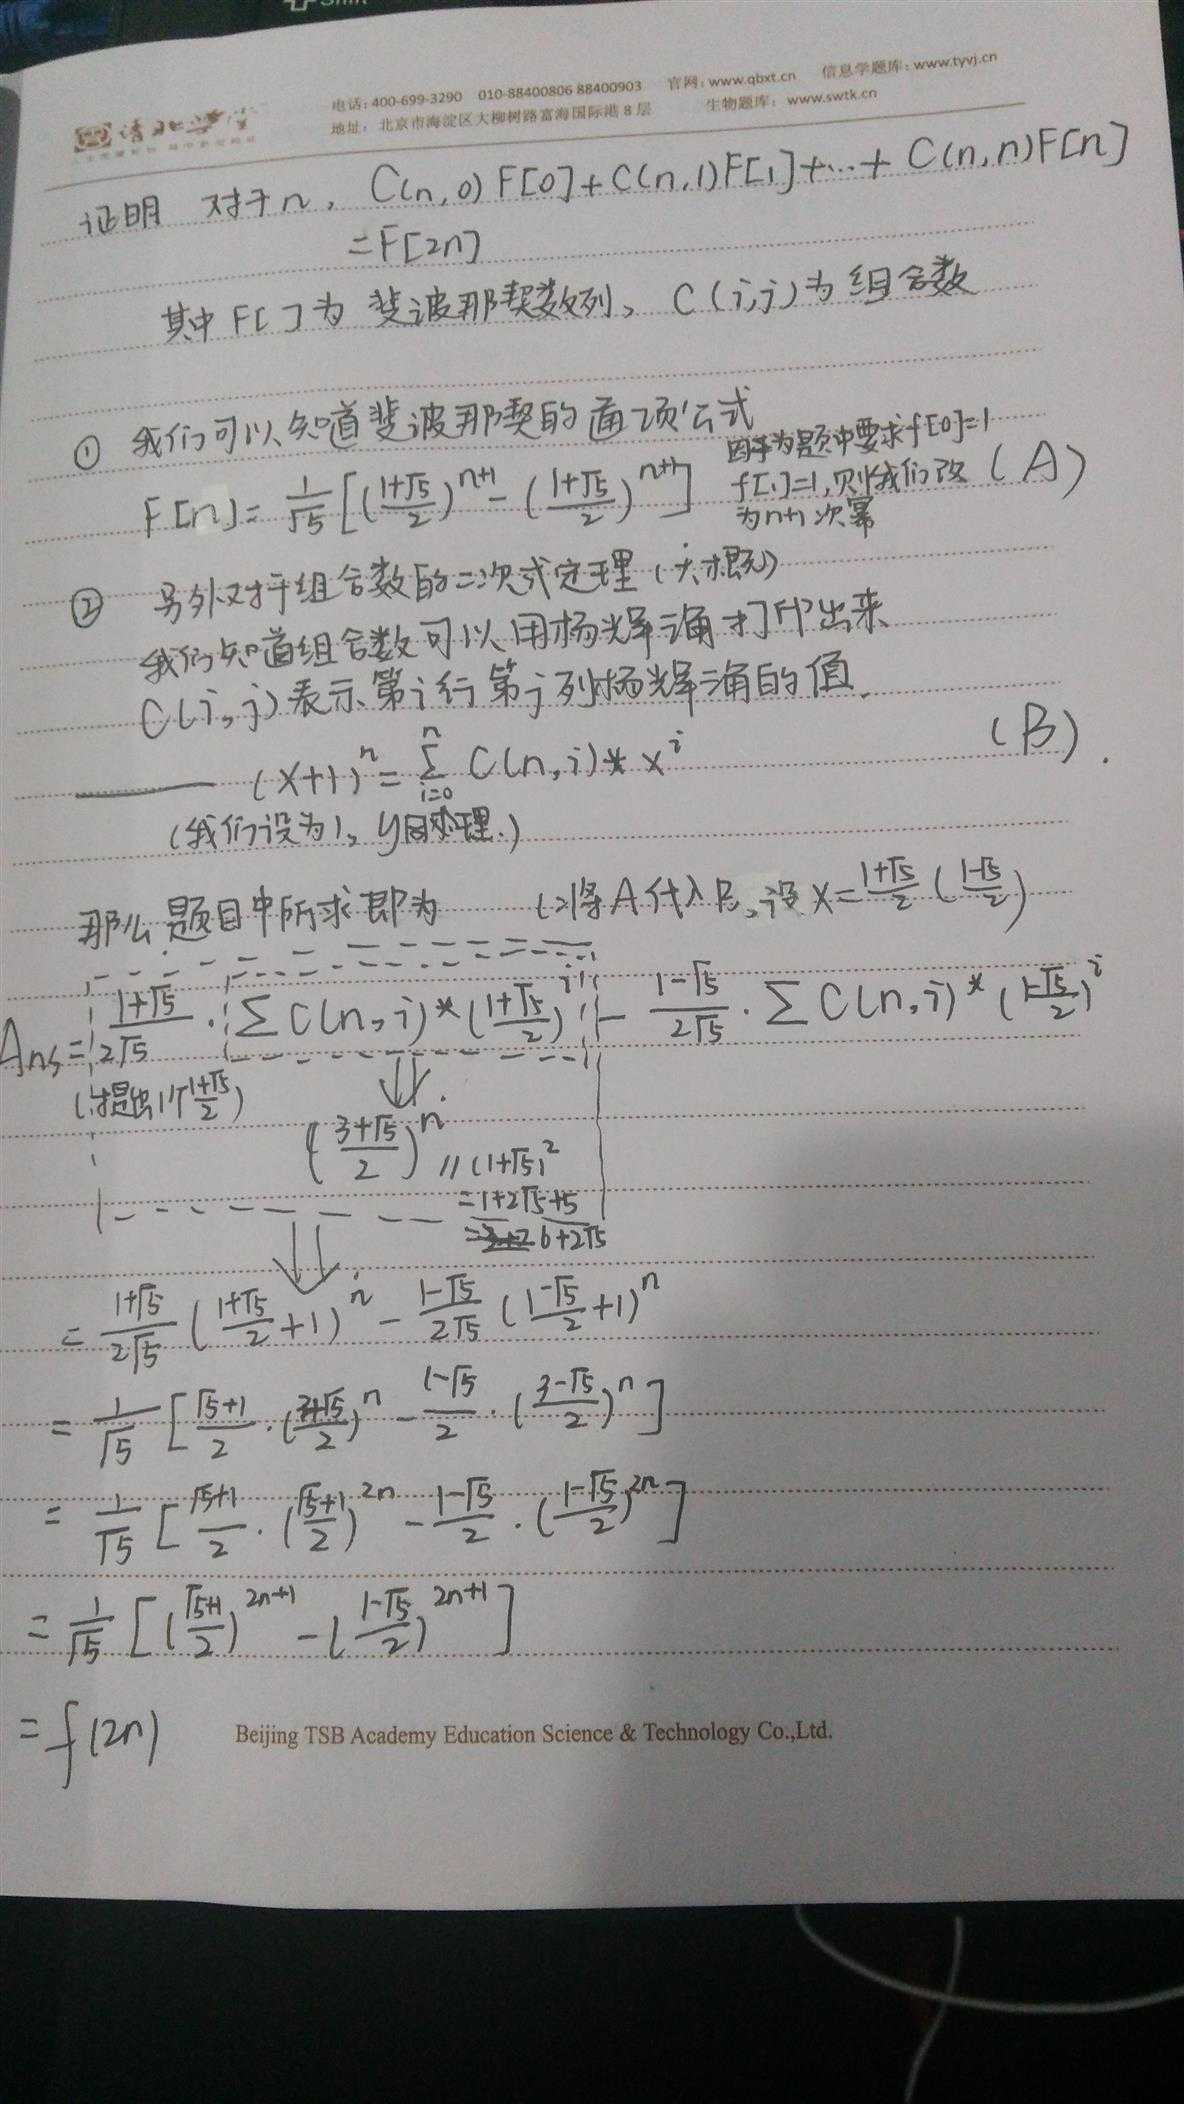 清北学堂
电话：400-699-3290 010-88400806 88400903 官网：www.qbxt.cn 信息学题库：www.tyvj.cn
地址：北京市海淀区大柳树路富海国际港8层 生物题库：www.swtk.cn
证明 对于n, C(n,0)F[0]+C(n,1)F[1]+…+C(n,n)F[n]
=F[2n]
其中F[]为斐波那契数列, C(i,j)为组合数
① 我们可以知道斐波那契的通项公式
F[n]= 1/√5 [((1+√5)/2)^(n+1) - ((1+√5)/2)^(n+1)] (A)
因为题中要求f[0]=1
f[1]=1,则我们改
为n+1次幂
② 另外对于组合数的二次式定理
我们知道组合数可以用杨辉三角打印出来
C(i,j)表示第i行第j列杨辉三角的值.
(x+1)^n = Σ(i=0→n) C(n,i)*x^i (B).
(我们设为1, y同理.)
那么题目中所求即为 将A代入B, 设x=(1+√5)/2 ((1-√5)/2)
Ans= (1+√5)/(2√5) · ΣC(n,i)*((1+√5)/2)^i - (1-√5)/(2√5) · ΣC(n,i)*((1-√5)/2)^i
(提出1个(1+√5)/2)
((3+√5)/2)^n
//(1+√5)^2
=1+2√5+5
=6+2√5
= (1+√5)/(2√5) ((1+√5)/2+1)^n - (1-√5)/(2√5) ((1-√5)/2+1)^n
= 1/√5 [(√5+1)/2 · ((3+√5)/2)^n - (1-√5)/2 · ((3-√5)/2)^n]
= 1/√5 [(√5+1)/2 · ((√5+1)/2)^(2n) - (1-√5)/2 · ((1-√5)/2)^(2n)]
= 1/√5 [((√5+1)/2)^(2n+1) - ((1-√5)/2)^(2n+1)]
= f(2n)
Beijing TSB Academy Education Science & Technology Co.,Ltd.